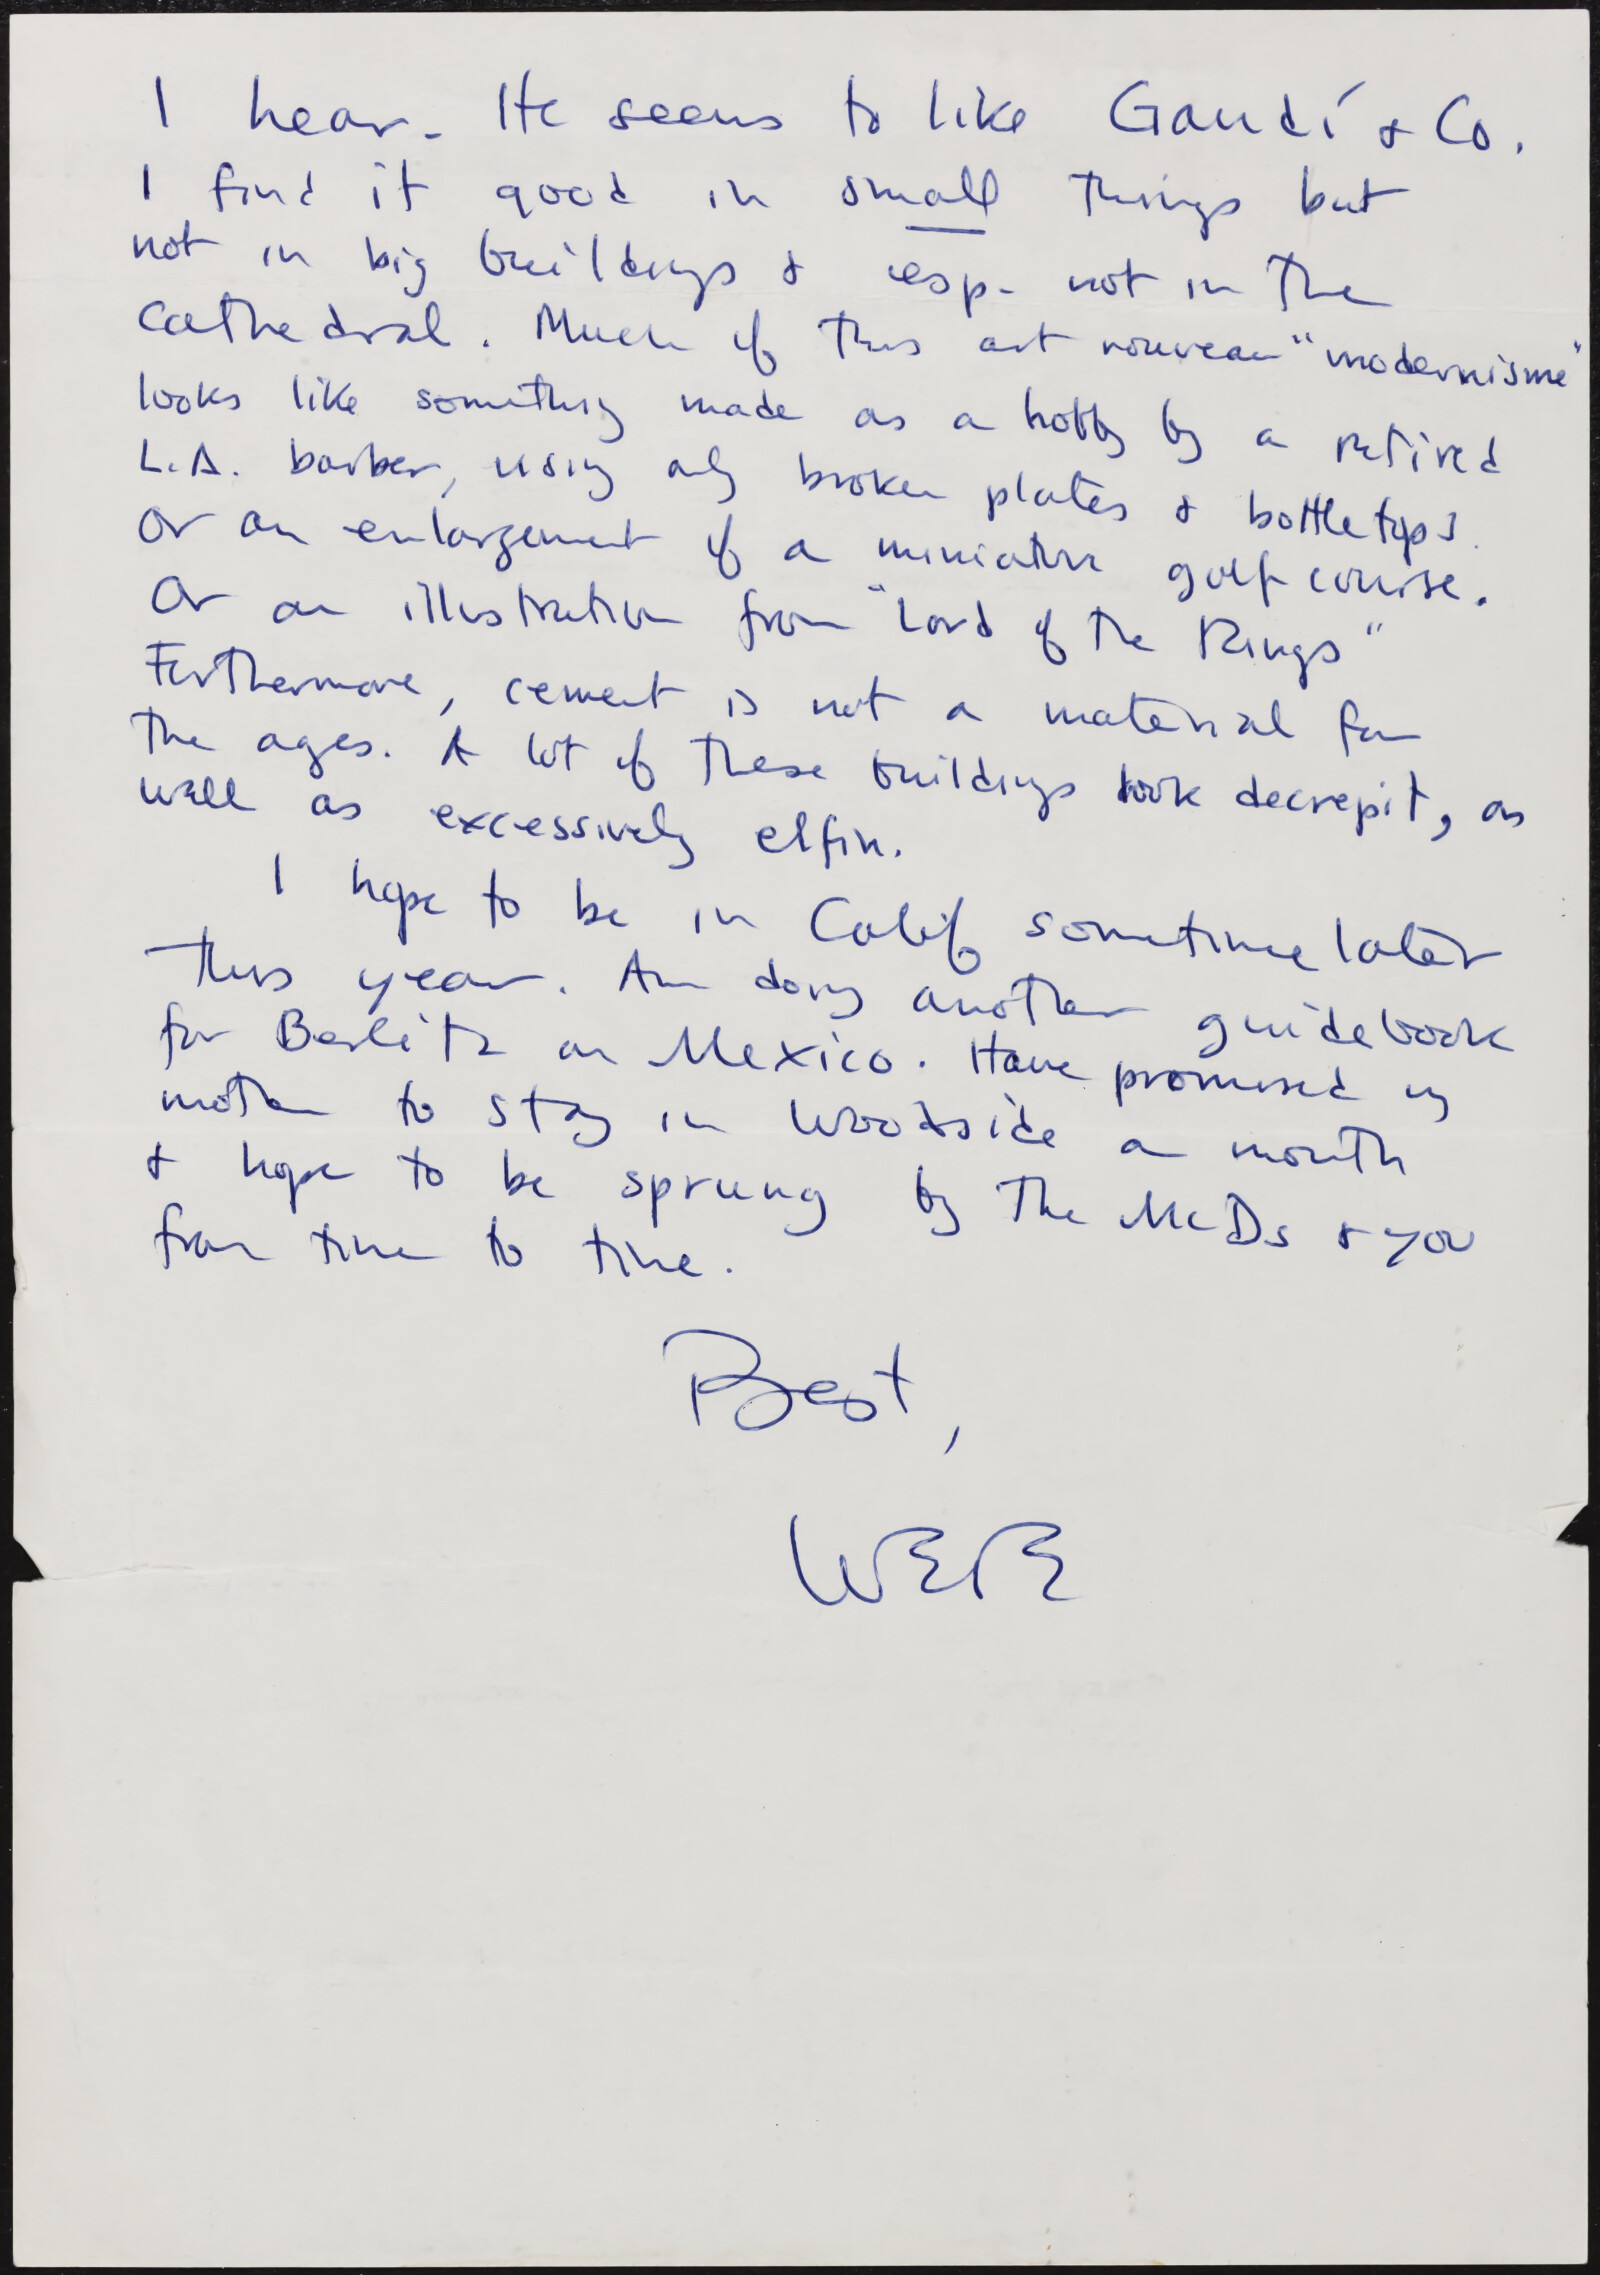 I hear. He seems to like Gaudí & Co.
I find it good in small things but
not in big buildings & esp. not in the
Cathedral. Much of this art nouveau "modernisme"
looks like something made as a hobby by a retired
L.A. barber, using only broken plates & bottletops.
Or an enlargement of a miniature golf course.
Or an illustration from "Lord of the Rings"
Furthermore, cement is not a material for
the ages. A lot of these buildings look decrepit, as
well as excessively elfin.
I hope to be in Calif sometime later
this year. Am doing another guidebook
for Berlitz on Mexico. Have promised my
mother to stay in Woodside a month
& hope to be sprung by the McDs & you
from time to time.
Best,